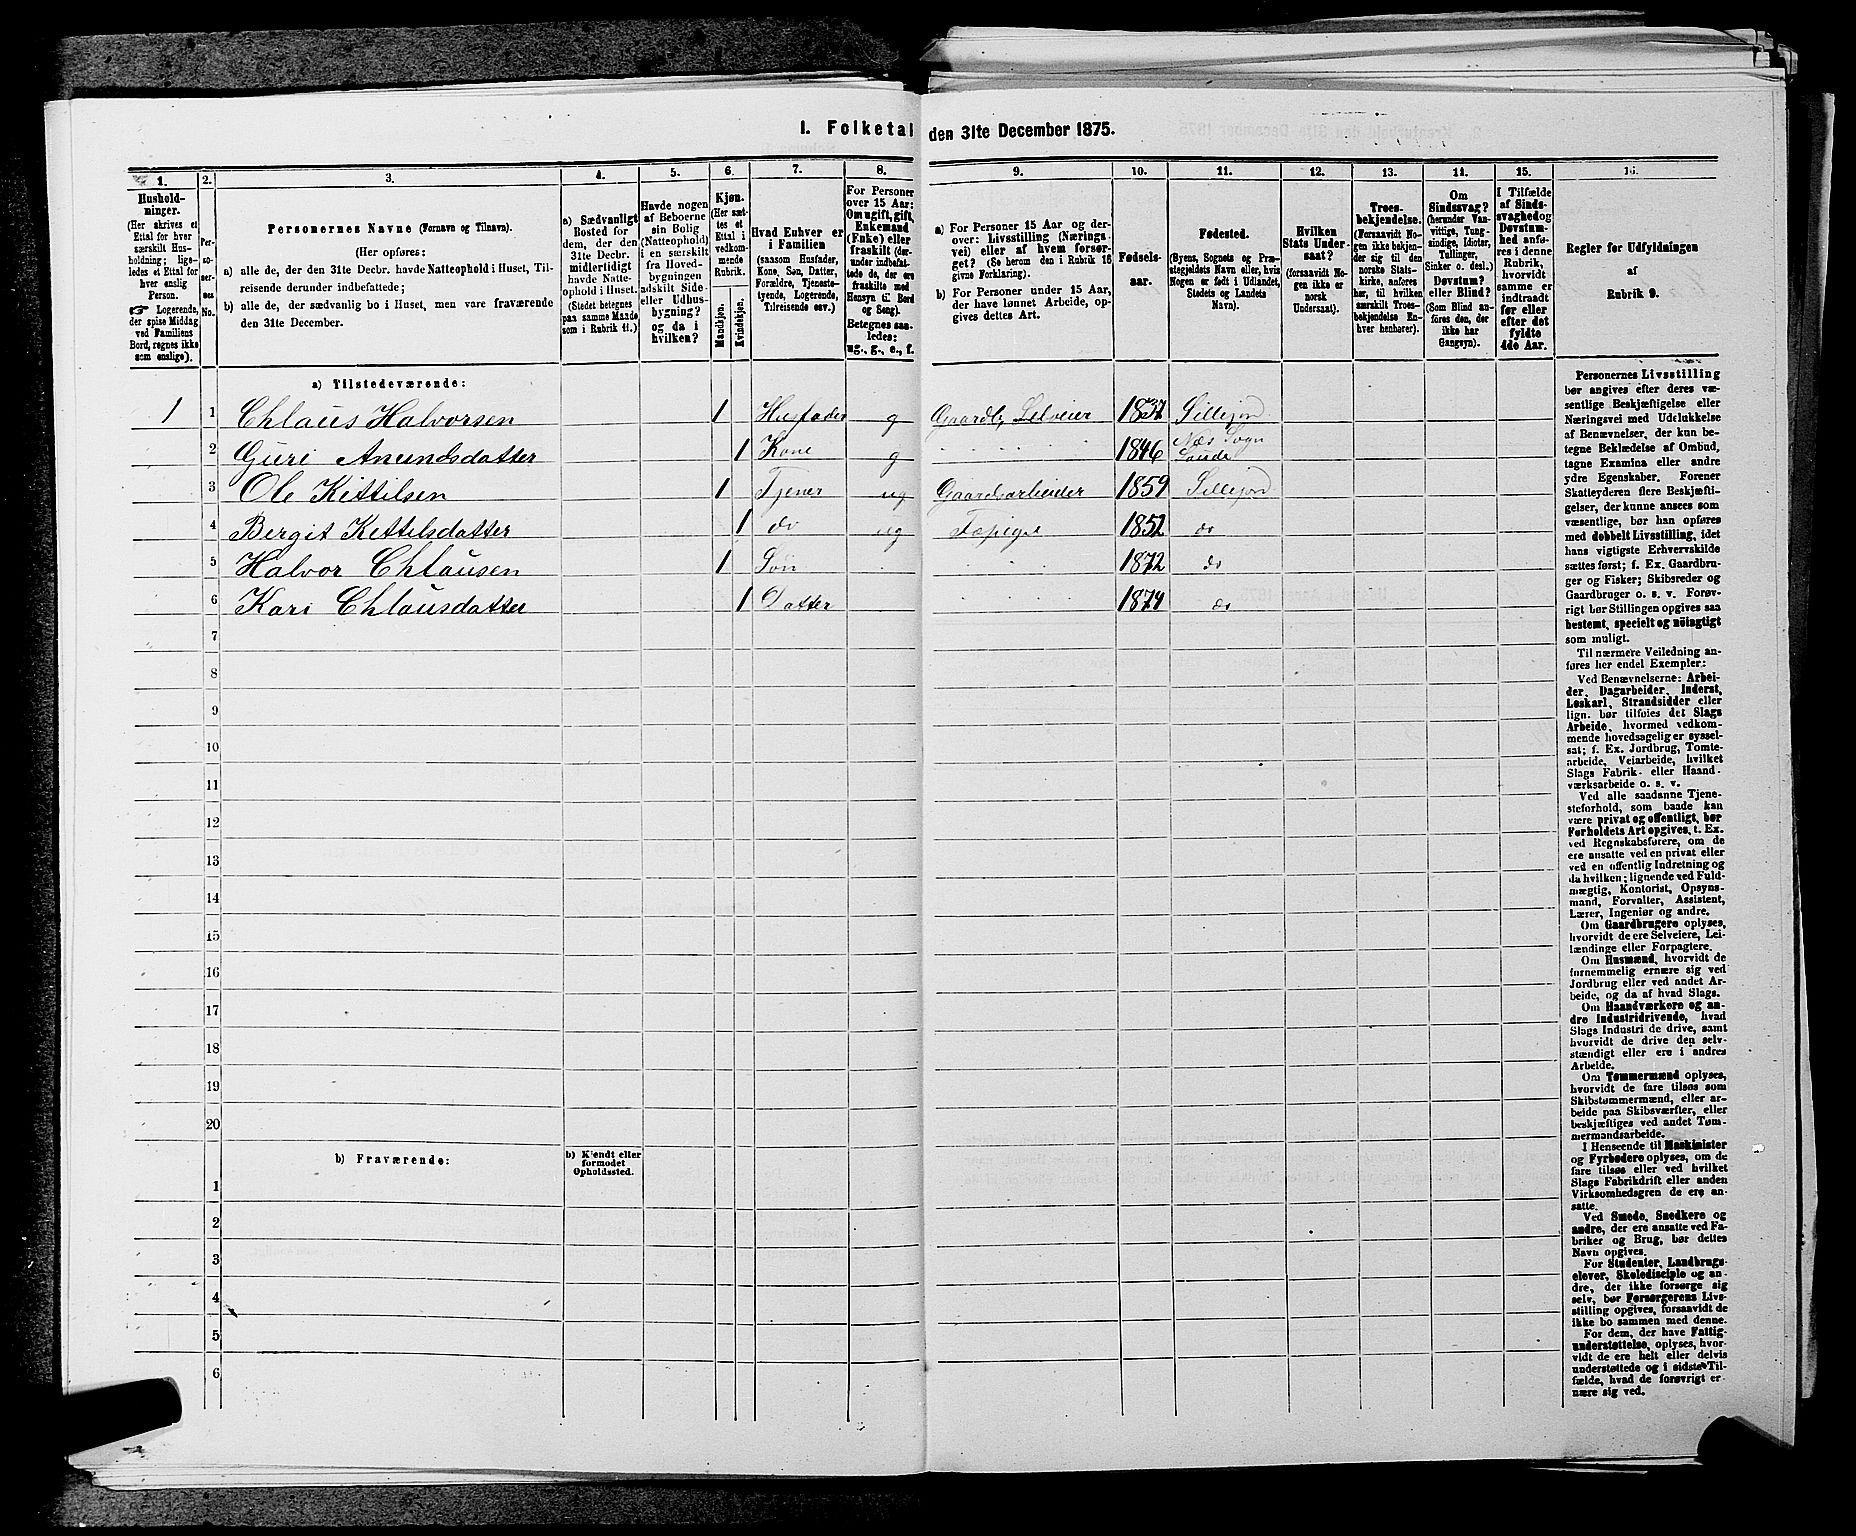 1. Folketal den 31te December 1875.
1. 2. 3. 4. 5. 6. 7. 8. 9. 10. 11. 12. 13. 14. 15. 16.
Hushold-
ninger.
(Her skrives et
Ettal for hver
særskilt Hus-
holdning; lige-
ledes et Ettal for
hver enslig
Person.
☞ Logerende,
der spise Middag
ved Familiens
Bord, regnes ikke
som enslige).
Per-
so-
ner-
nes
No.
Personernes Navne (Fornavn og Tilnavn).
(Her opføres:
a) alle de, der den 31te Decbr. havde Natteophold i Huset, Til-
reisende derunder indbefattede;
b) alle de, der sædvanlig bo i Huset, men vare fraværende
den 31te December.
a) Sædvanligt
Bosted for
dem, der den
31te Decbr.
midlertidigt
havde Natte-
ophold i Huset.
(Stedet betegnes
paa samme Maade
som i Rubrik 11.)
Havde nogen
af Beboerne
sin Bolig
(Natteophold)
i en særskilt
fra Hoved-
bygningen
adskilt Side-
eller Udhus-
bygning?
og da i
hvilken?
Kjøn.
(Her sæt-
tes et
Ettal i
vedkom-
mende
Rubrik.
Mandkjøn.
Kvindekjøn.
Hvad Enhver er
i Familien
(saasom Husfader,
Kone, Søn, Datter,
Forældre, Tjeneste-
tyende, Logerende,
Tilreisende osv.)
For Personer
over 15 Aar:
Om ugift, gift,
Enkemand
(Enke) eller
fraskilt (der-
under indbefat-
tede de, der ere
fraskilte med
Hensyn til Bord
og Seng).
Betegnes saa-
ledes:
ug., g., e., f.
a) For Personer 15 Aar og der-
over: Livsstilling (Nærings-
vei) eller af hvem forsør-
get? (Se herom den i Rubrik 16
givne Forklaring).
b) For Personer under 15 Aar,
der have lønnet Arbeide, op-
gives dettes Art.
Fødsels-
aar.
Fødested.
(Byens, Sognets og Præ-
stegjeldets Navn eller, hvis
Nogen er født i Udlandet,
Stedets og Landets
Navn).
Hvilken
Stats Under-
saat?
(forsaavidt No-
gen ikke er
norsk
Undersaat).
Troes-
bekjendelse.
(Forsaavidt No-
gen ikke bekjen-
der sig til den
norske Stats-
kirke, anføres
her, til hvilken
særskilt Troes-
bekjendelse En-
hver henhører).
Om
Sindssvag?
(herunder Van-
vittige, Tung-
sindige, Idioter,
Tullinger,
Sinker o. desl.)
Døvstum?
eller Blind?
(Som Blind an-
føres den, der
ikke har
Gangsyn).
I Tilfælde
af Sinds-
svaghed og
Døvstum-
hed anfø-
res i denne
Rubrik,
hvorvidt
samme er
indtraadt
før eller
efter det
fyldte
4de Aar.
Regler for Udfyldningen
af
Rubrik 9.
a) Tilstedeværende:
1 1 Chlaus Halvorsen 1 Husfader g Gaardb. Selveier 1837 Sillejord
2 Guri Anundsdatter 1 Kone g 1846 Næs Sogn
Sande
3 Ole Kittilsen 1 Tjener ug Gaardsarbeider 1859 Sillejord
4 Bergit Kettilsdatter 1 do ug 1852 do
5 Halvor Chlausen 1 Søn 1872 do
6 Kari Chlausdatter 1 Datter 1874 do
7
8
9
10
11
12
13
14
15
16
17
18
19
20
b) Fraværende:
b) Kjendt eller
formodet
Opholdssted.
1
2
3
4
5
6
Personernes Livsstilling
bør angives efter deres væ-
sentlige Beskjæftigelse eller
Næringsvei med Udelukkelse
af Benævnelser, der kun be-
tegne Beklædelse af Ombud,
tagne Examina eller andre
ydre Egenskaber. Forener
Skatteyderen flere Beskjæfti-
gelser, der kunne ansees som
væsentlige, bør han opføres
med dobbelt Livsstilling, idet
hans vigtigste Erhvervskilde
sættes først; f. Ex. Gaardbru-
ger og Fisker; Skibsreder og
Gaardbruger o. s. v. Forøv-
rigt bør Stillingen opgives saa
bestemt, specielt og nöiagtigt
som muligt.
Til nærmere Veiledning an-
føres her endel Exempler:
Ved Benævnelserne: Arbei-
der, Dagarbeider, Inderst,
Løskarl, Strandsidder eller
lign. bør tilføies det Slags
Arbeide, hvormed vedkom-
mende hovedsagelig er syssel-
sat; f. Ex. Jordbrug, Tomte-
arbeide, Veiarbeide, hvilket
Slags Fabrik- eller Haand-
værksarbeide o. s. v.
Ved alle saadanne Tjene-
steforhold, som baade kan
være privat og offentligt, bør
Forholdets Art opgives, t. Ex.
ved Regnskabsførere, om de
ere ansatte ved en privat eller
ved en offentlig Indretning og
da hvilken; lignende ved Fuld-
mægtig, Kontorist, Opsyns-
mand, Forvalter, Assistent,
Lærer, Ingeniør og andre.
Om Gaardbrugere oplyses,
hvorvidt de ere Selveiere, Lei-
lændinge eller Forpagtere.
Om Husmænd, hvorvidt de
fornemmelig ernære sig ved
Jordbrug eller ved andet Ar-
beide, og da af hvad Slags.
Om Haandværkere og an-
dre Industridrivende, hvad
Slags Industri de drive, samt
hvorvidt de drive den selv-
stændigt eller ere i andres
Arbeide.
Om Tømmermænd oplyses,
hvorvidt de fare tilsøs som
Skibstømmermænd, eller ar-
beide paa Skibsværfter, eller
beskjæftiges ved andet Tøm-
mermandsarbeide.
I Henseende til Maskinister
og Fyrbødere oplyses, om de
fare tilsøs eller ved hvilket
Slags Fabrikdrift eller anden
Virksomhedsgren de ere an-
satte.
Ved Smede, Snedkere og
andre, der ere ansatte ved Fa-
briker og Brug, bør dettes
Navn opgives.
For Studenter, Landbrugs-
elever, Skoledisciple og an-
dre, der ikke forsørge sig
selv, bør Forsørgerens Livs-
stilling opgives, forsaavidt de
ikke bo sammen med denne.
For dem, der have Fattig-
understøttelse, oplyses, hvor-
vidt de ere helt eller delvis
understøttede og i sidste Til-
fælde, hvad de forøvrigt er-
nære sig ved.